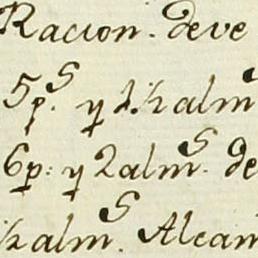 Racion. deve
5p.^s y 1½ alm
6p: y 2 alm.^s de
½ alm.^s Alcan